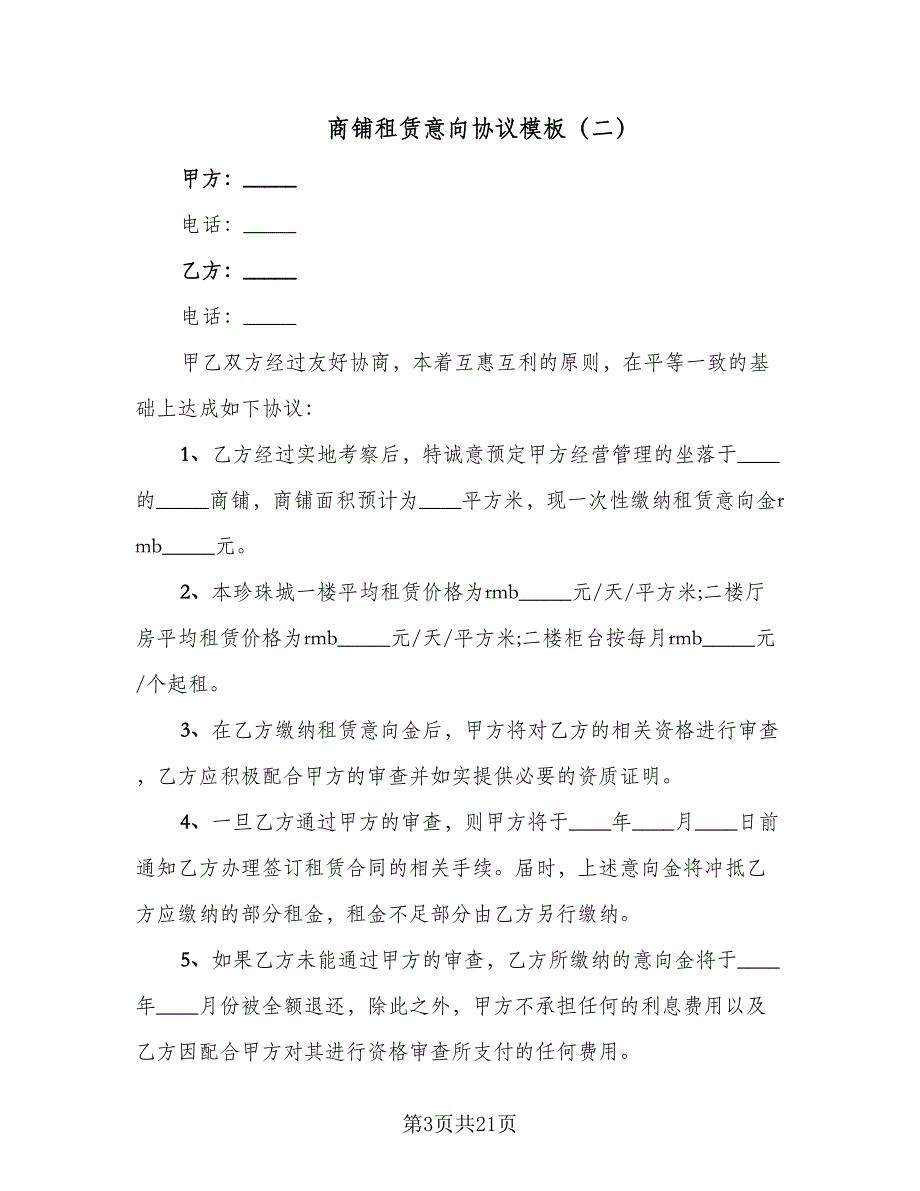 商铺租赁意向协议模板（二）
甲方：_____
电话：_____
乙方：_____
电话：_____
甲乙双方经过友好协商，本着互惠互利的原则，在平等一致的基
础上达成如下协议：
1、乙方经过实地考察后，特诚意预定甲方经营管理的坐落于____
的_____商铺，商铺面积预计为____平方米，现一次性缴纳租赁意向金r
mb_____元。
2、本珍珠城一楼平均租赁价格为rmb_____元/天/平方米;二楼厅
房平均租赁价格为rmb_____元/天/平方米;二楼柜台按每月rmb_____元
/个起租。
3、在乙方缴纳租赁意向金后，甲方将对乙方的相关资格进行审查
，乙方应积极配合甲方的审查并如实提供必要的资质证明。
4、一旦乙方通过甲方的审查，则甲方将于____年____月____日前
通知乙方办理签订租赁合同的相关手续。届时，上述意向金将冲抵乙
方应缴纳的部分租金，租金不足部分由乙方另行缴纳。
5、如果乙方未能通过甲方的审查，乙方所缴纳的意向金将于____
年____月份被全额退还，除此之外，甲方不承担任何的利息费用以及
乙方因配合甲方对其进行资格审查所支付的任何费用。
第3页共21页